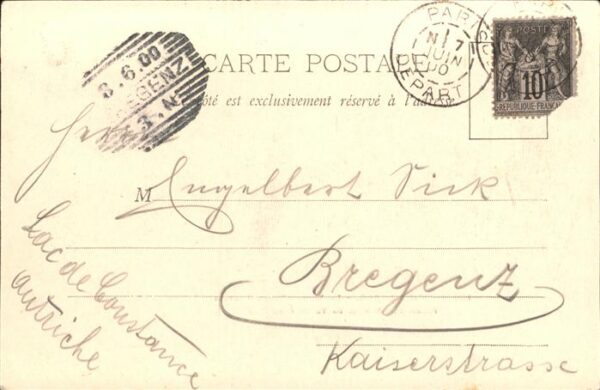 CARTE POSTALE
côté est exclusivement réservé à l'adresse
PARIS
7
JUIN
00
DEPART
POSTE
10
REPUBLIQUE FRANCAISE
8.6.00
BREGENZ
3.N.
Herrn
M Engelbert Sick
Bregenz
Kaiserstrasse
Lac de Constance
autriche